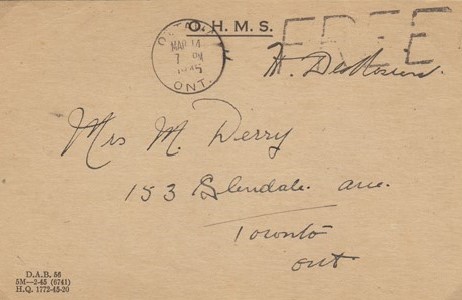 O. H. M. S.
FREE
OTTAWA
MAR 14
7 PM
1945
ONT.
Mrs M. Derry
153 Glendale ave.
Toronto
ont
D.A.B. 56
5M—2-45 (6741)
H.Q. 1772-45-20